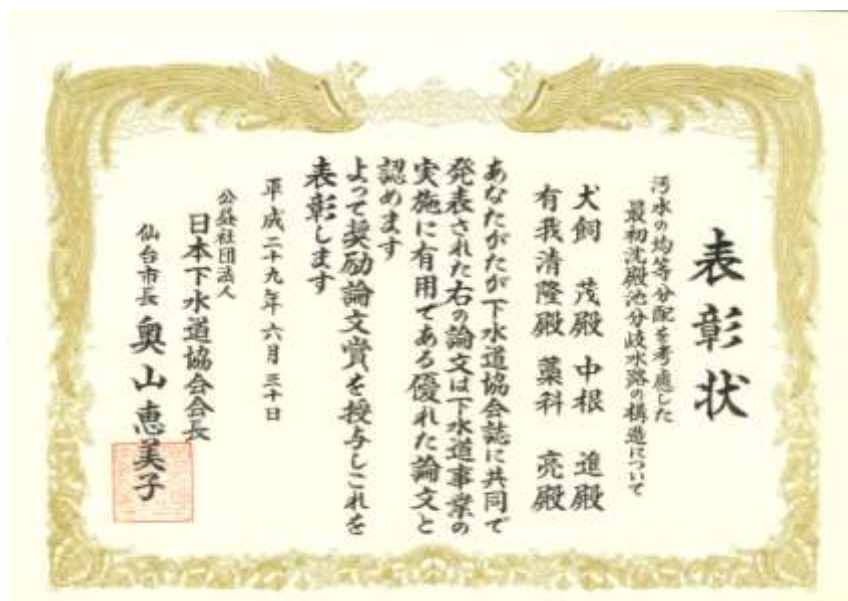 表彰状
汚水の均等分配を考慮した
最初沈殿池分岐水路の構造について
犬飼 茂殿 中根 進殿
有我清隆殿 藁科 亮殿
あなたがたが下水道協会誌に共同で
発表された右の論文は下水道事業の
実施に有用である優れた論文と
認めます
よって奨励論文賞を授与しこれを
表彰します
平成二十九年六月三十日
公益社団法人
日本下水道協会会長
仙台市長 奥山恵美子